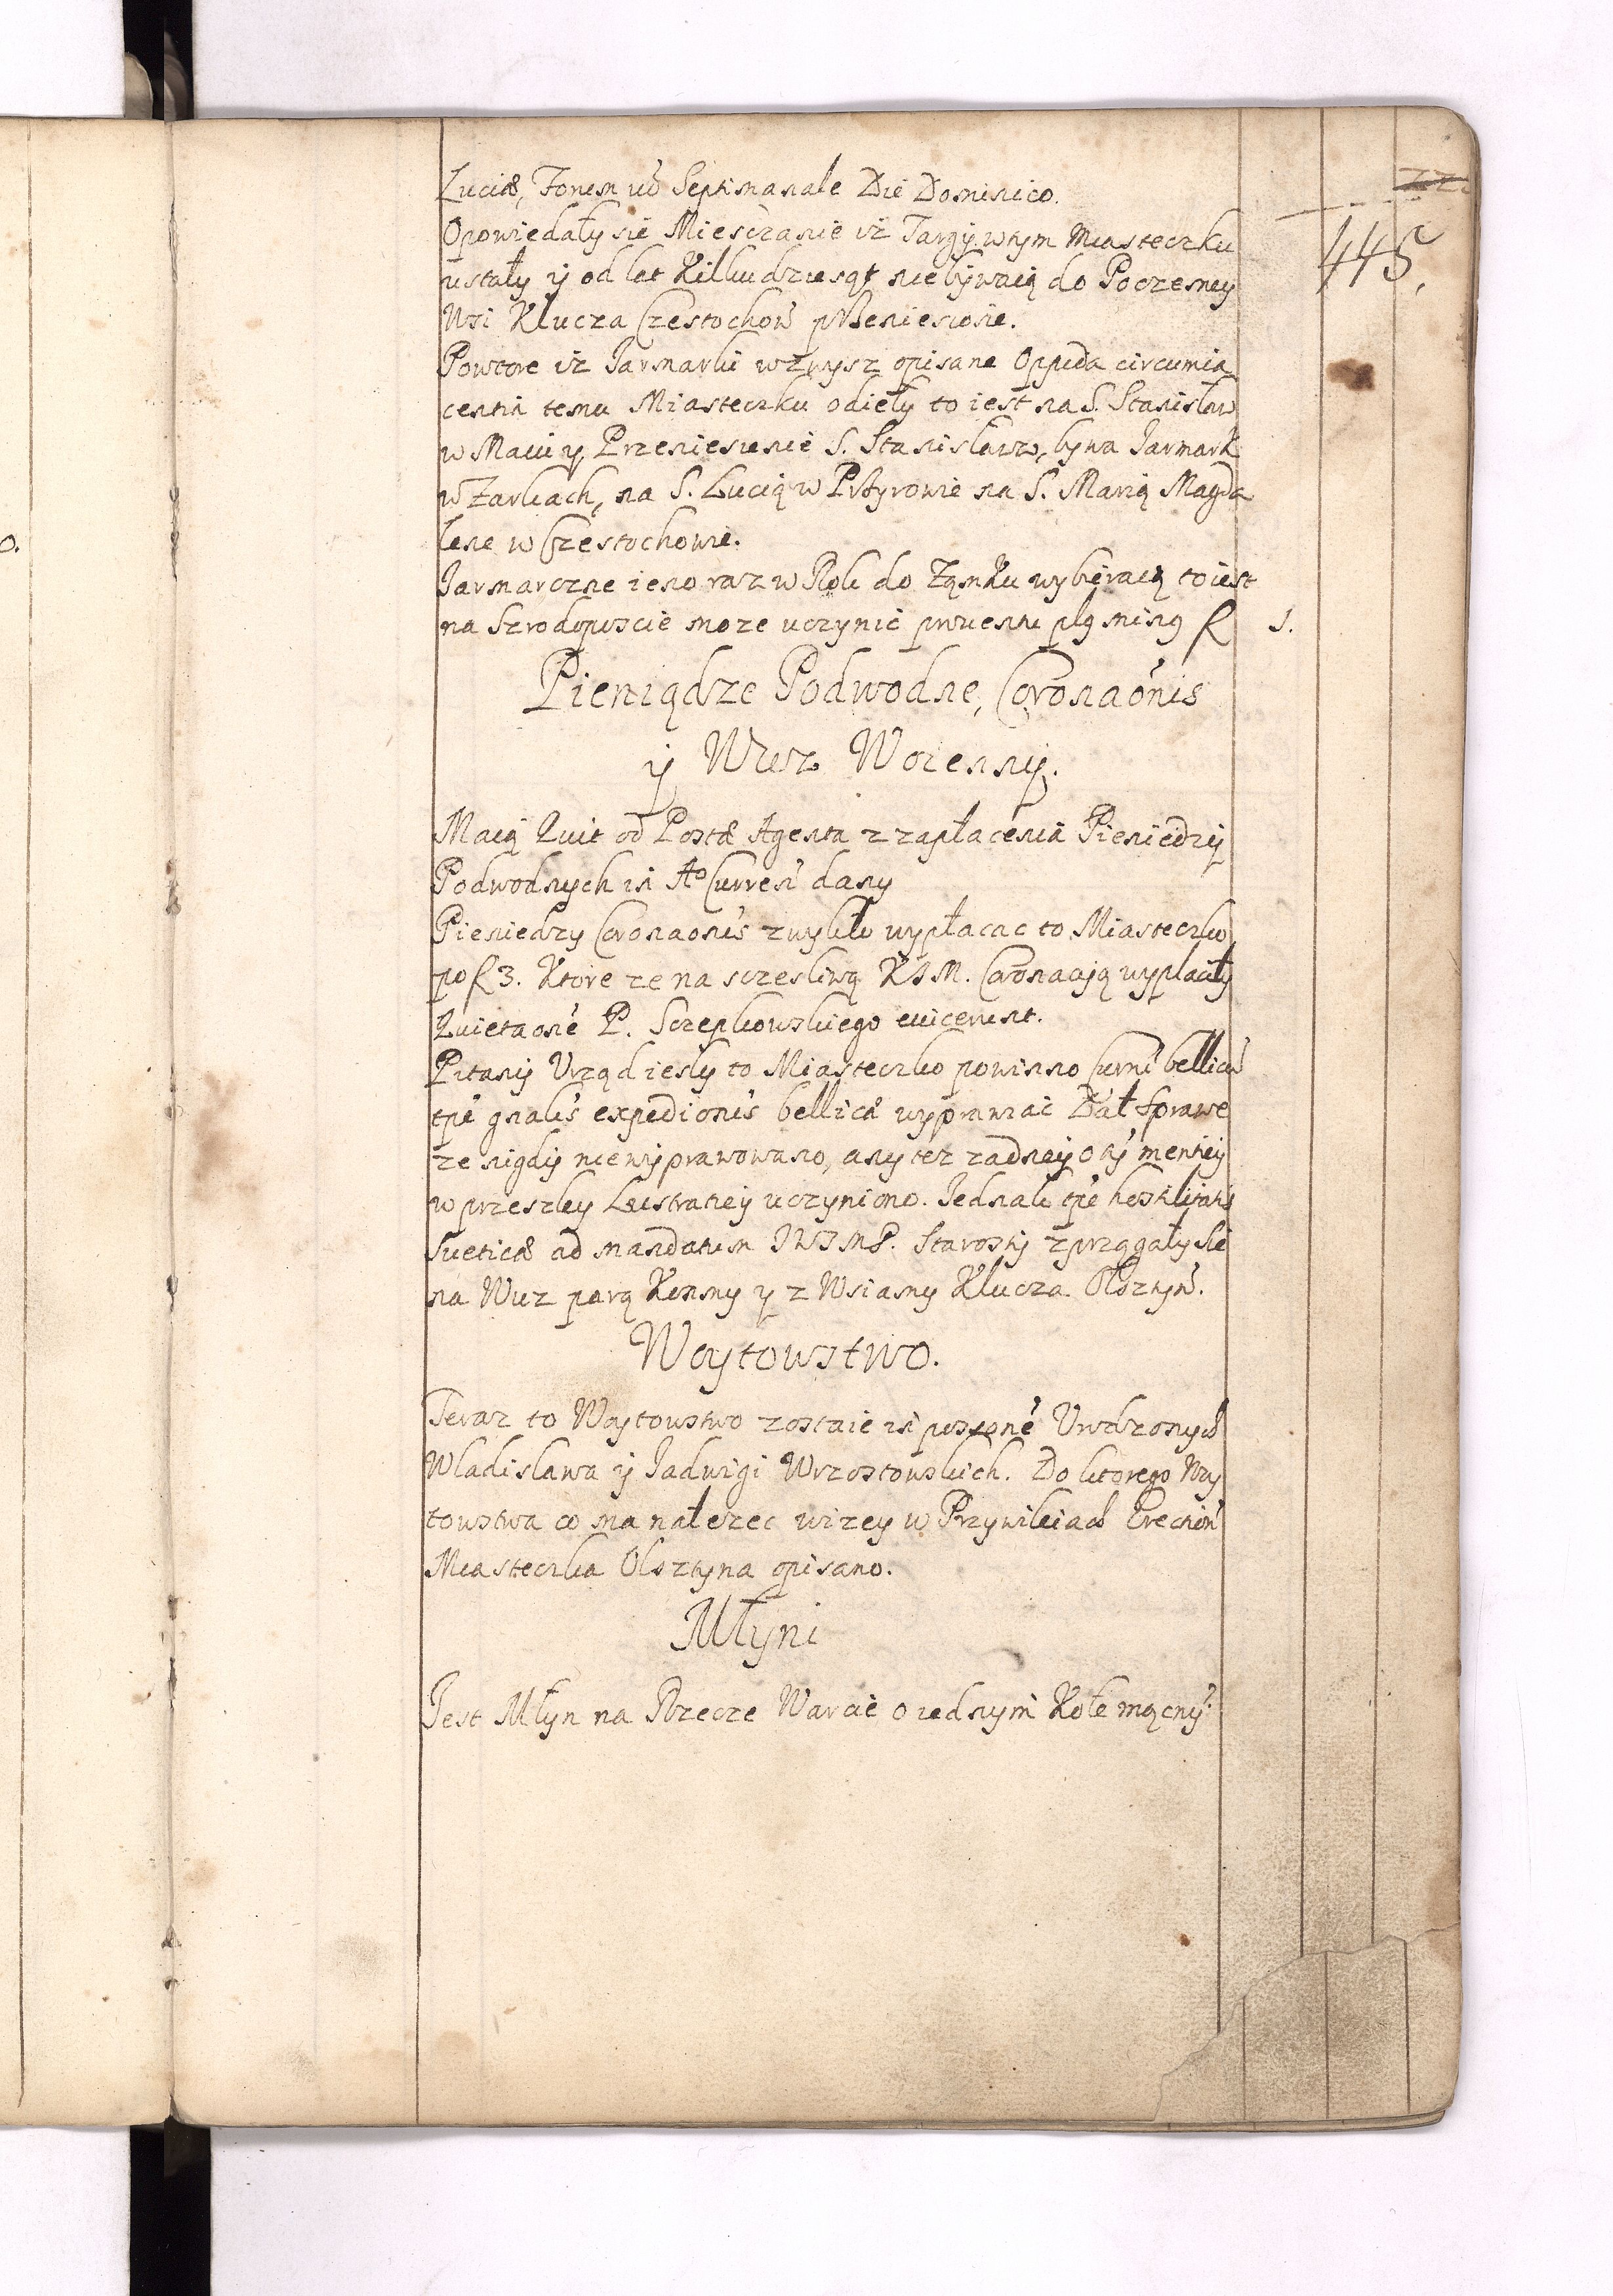 Luciæ, Forum vo Septimanale Die Dominico.
445.
Opowiedały sie Miesczanie iz Targy w tym Miasteczku
ustały y od lat Kilkudziesąt nie bywaią do Poczesney
Wsi Klucza Czestochow przeniesione.
Powtore iz Jarmarki wzwysz opisane Oppida circumia
centia temu Miasteczku odieły to iest na S. Stanisław
w Maiu y Przeniesienie S. Stanisława, bywa Jarmark
w Zarkach, na S. Lucią w Przyrowie na S. Marią Magda
lene w Czestochowie.
Jarmarczne ieno raz w Rok do Zamku wybieraią to iest
na Szrodopuscie moze uczynic prouentu plg ming f 1.
Pieniądze Podwodne, Coronaonis
y Wuz Woienny.
Maią Quit od Postæ Agenta z zapłacenia Pieniedzy
Podwodnych in Ao Curren dany
Pieniedzy Coronaonis zwykło wypłacac to Miasteczko
po f 3. Ktore ze na sczesliwą KJM. Coronacyą wypłacily
Quietaone P. Sczepkowskiego euicerunt.
Pitany Urząd iesly to Miasteczko powinno Curru bellicu
tpe gnalis expedionis bellicæ wyprawiac Dał Sprawe
ze nigdy nie wyprawowano, any tez zadney o ty mentiey
w przeszley Lustratiey uczyniono. Jednak tpe hostilitatis
Sueticæ ad mandatum JWJMP. Starosty zprzągały sie
na Wuz parą Konmy y z Wsiamy Klucza Olsztyn.
Woytowstwo.
Teraz to Woytowstwo zostaie in possone Urodzonych
Wladislawa y Jadwigi Wrzostowskich. Do ktorego Woy
towstwa co ma nalezec wizey w Przywileiach Erection
Miasteczka Olsztyna opisano.
Młyni
Jest Młyn na Rzecze Warcie o iednym Kole mącny.